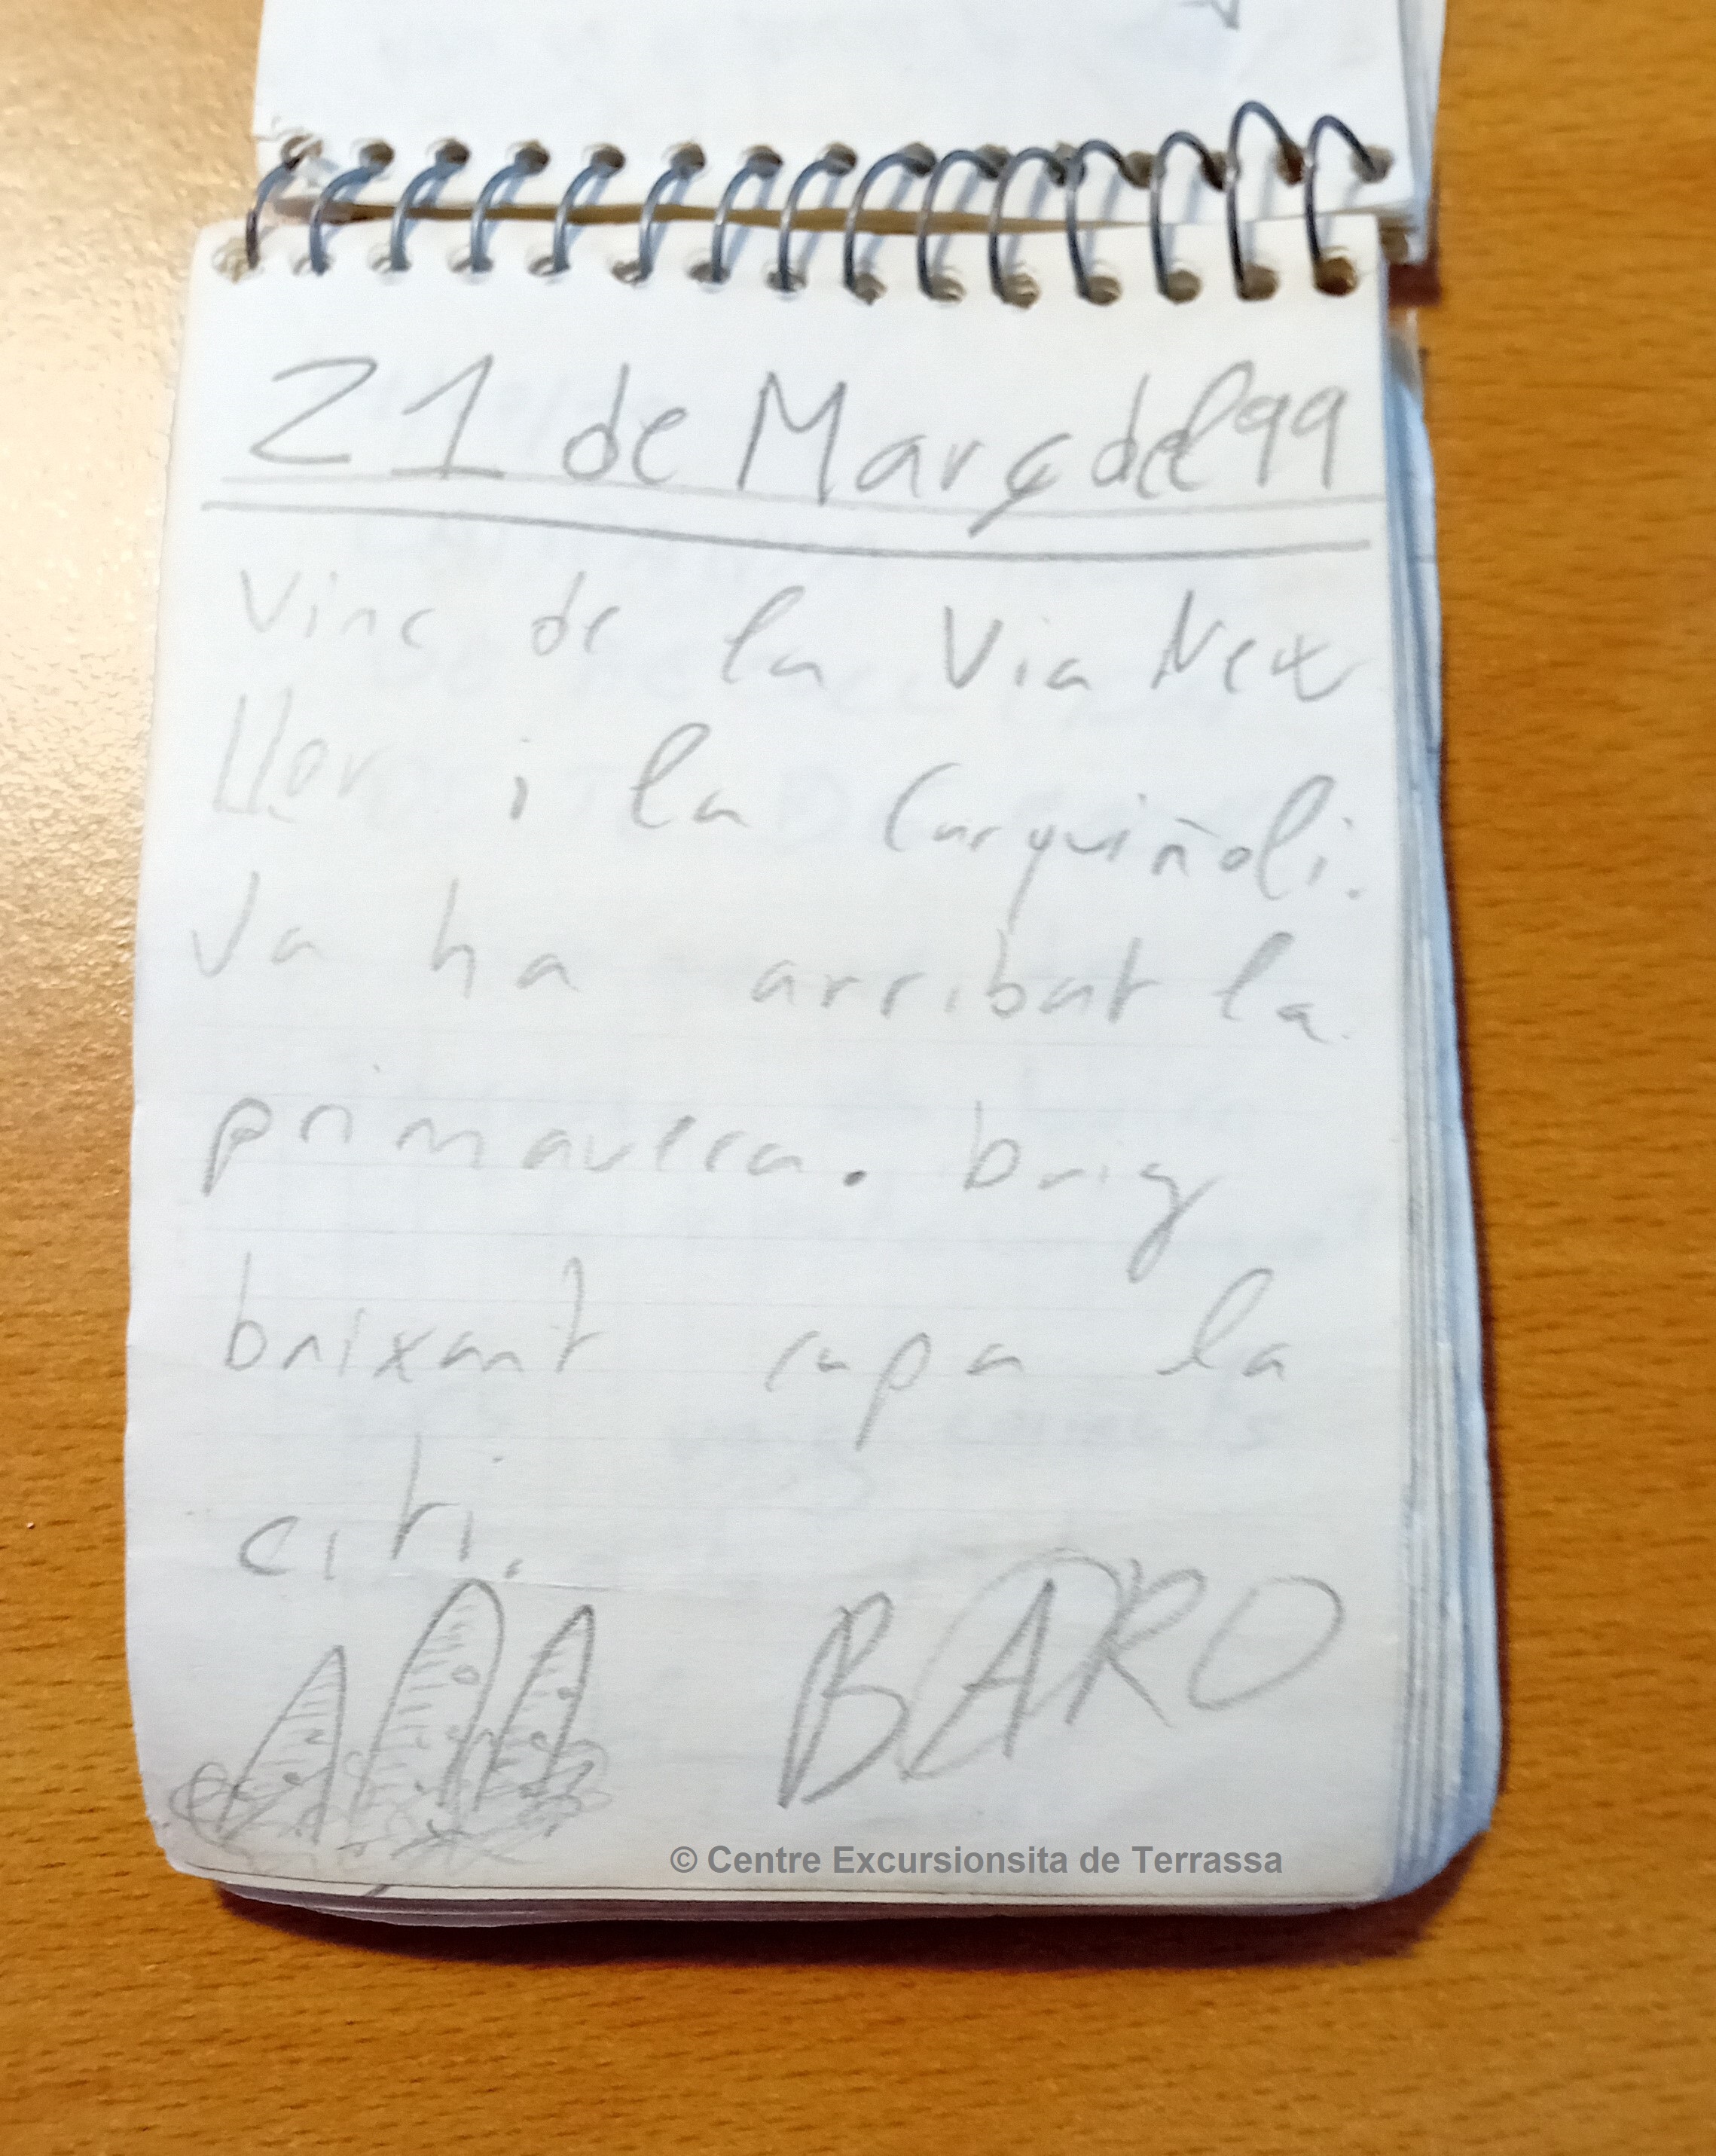 21 de Març del 99
Vinc de la Via Nex
llor i la Carquiñoli.
Ja ha arribat la
primavera. baig
baixant capa la
citi.
BARO
© Centre Excursionsita de Terrassa